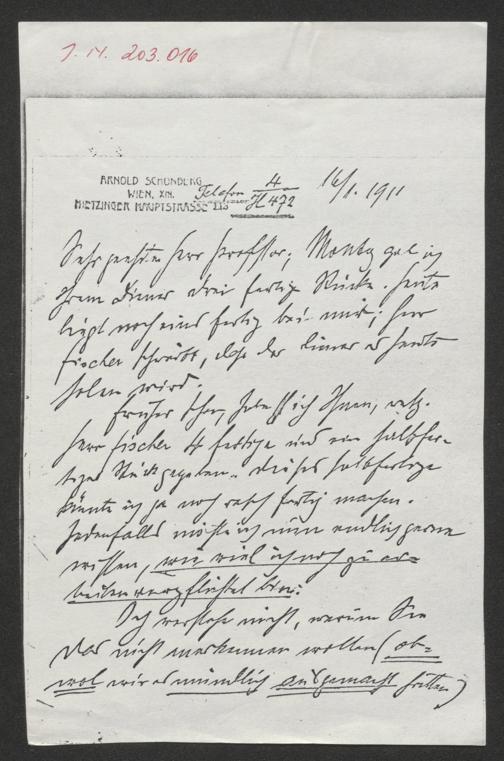 J.N. 203.016
ARNOLD SCHÖNBERG
WIEN, XIII.
HIETZINGER HAUPTSTRASSE 113
Telefon 4
H 472
16/1. 1911
Sehr geehrter Herr Professor; Montag gab ich
Ihrem Diener drei fertige Stücke. Heute
liegt noch eins fertig bei mir; Herr
Fischer schreibt, daß der Diener es heute
holen wird.
Früher schon, habe ich Ihnen, resp.
Herrn Fischer 4 fertige und ein halbfer-
tiges Stück gegeben. Dieses halbfertige
könnte ich ja noch rasch fertig machen.
Jedenfalls möchte ich nun endlich gerne
wissen, wie viel ich noch zu ar-
beiten verpflichtet bin.
Ich verstehe nicht, warum Sie
das nicht anerkennen wollen (ob-
wol wir es mündlich ausgemacht hatten)